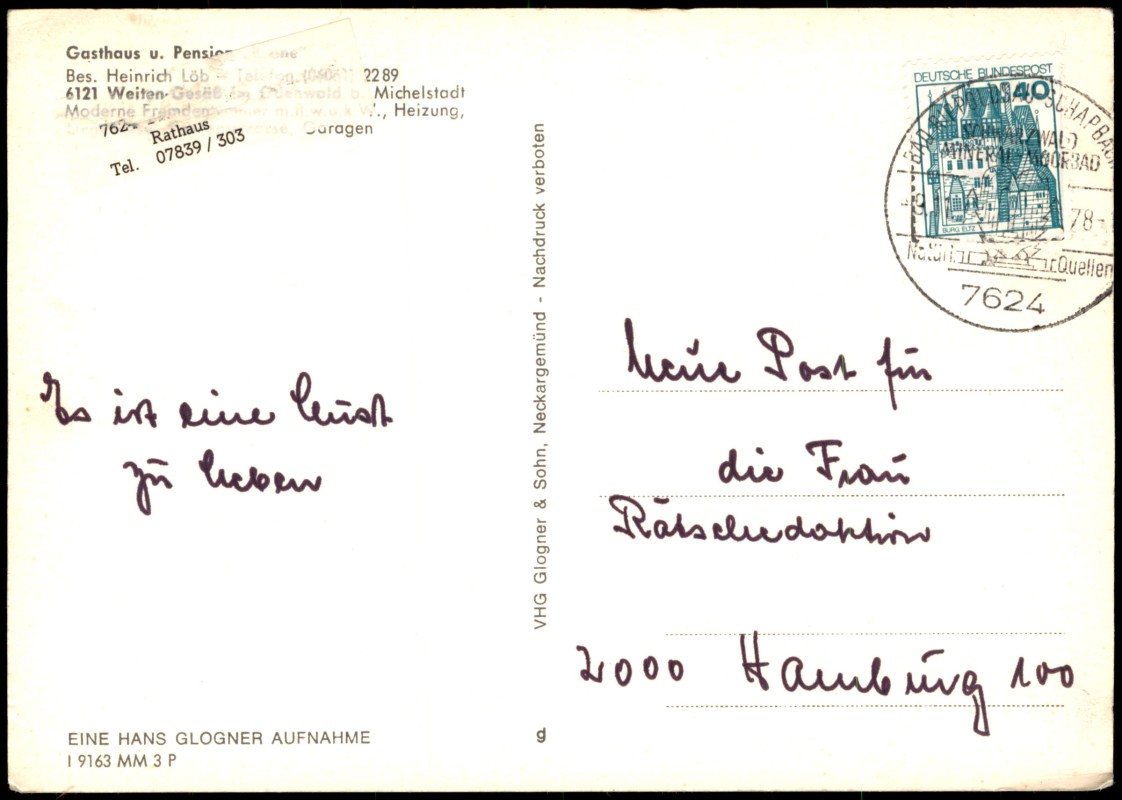 Gasthaus u. Pension
Bes. Heinrich Löb - Telefon (06061) 2289
6121 Weiten-Gesäß im Odenwald b. Michelstadt
Moderne Fremdenzimmer m. fl. w. u. k. W., Heizung,
Garagen
762
Rathaus
Tel. 07839 / 303
DEUTSCHE BUNDESPOST
40
BURG ELTZ
SCHAPBACH
SCHWARZWALD
MINERAL-MOORBAD
78
Quellen
7624
Es ist eine Lust
zu leben
VHG Glogner & Sohn, Neckargemünd - Nachdruck verboten
Neue Post für
die Frau
Rätselredaktion
2000 Hamburg 100
EINE HANS GLOGNER AUFNAHME
I 9163 MM 3 P
g